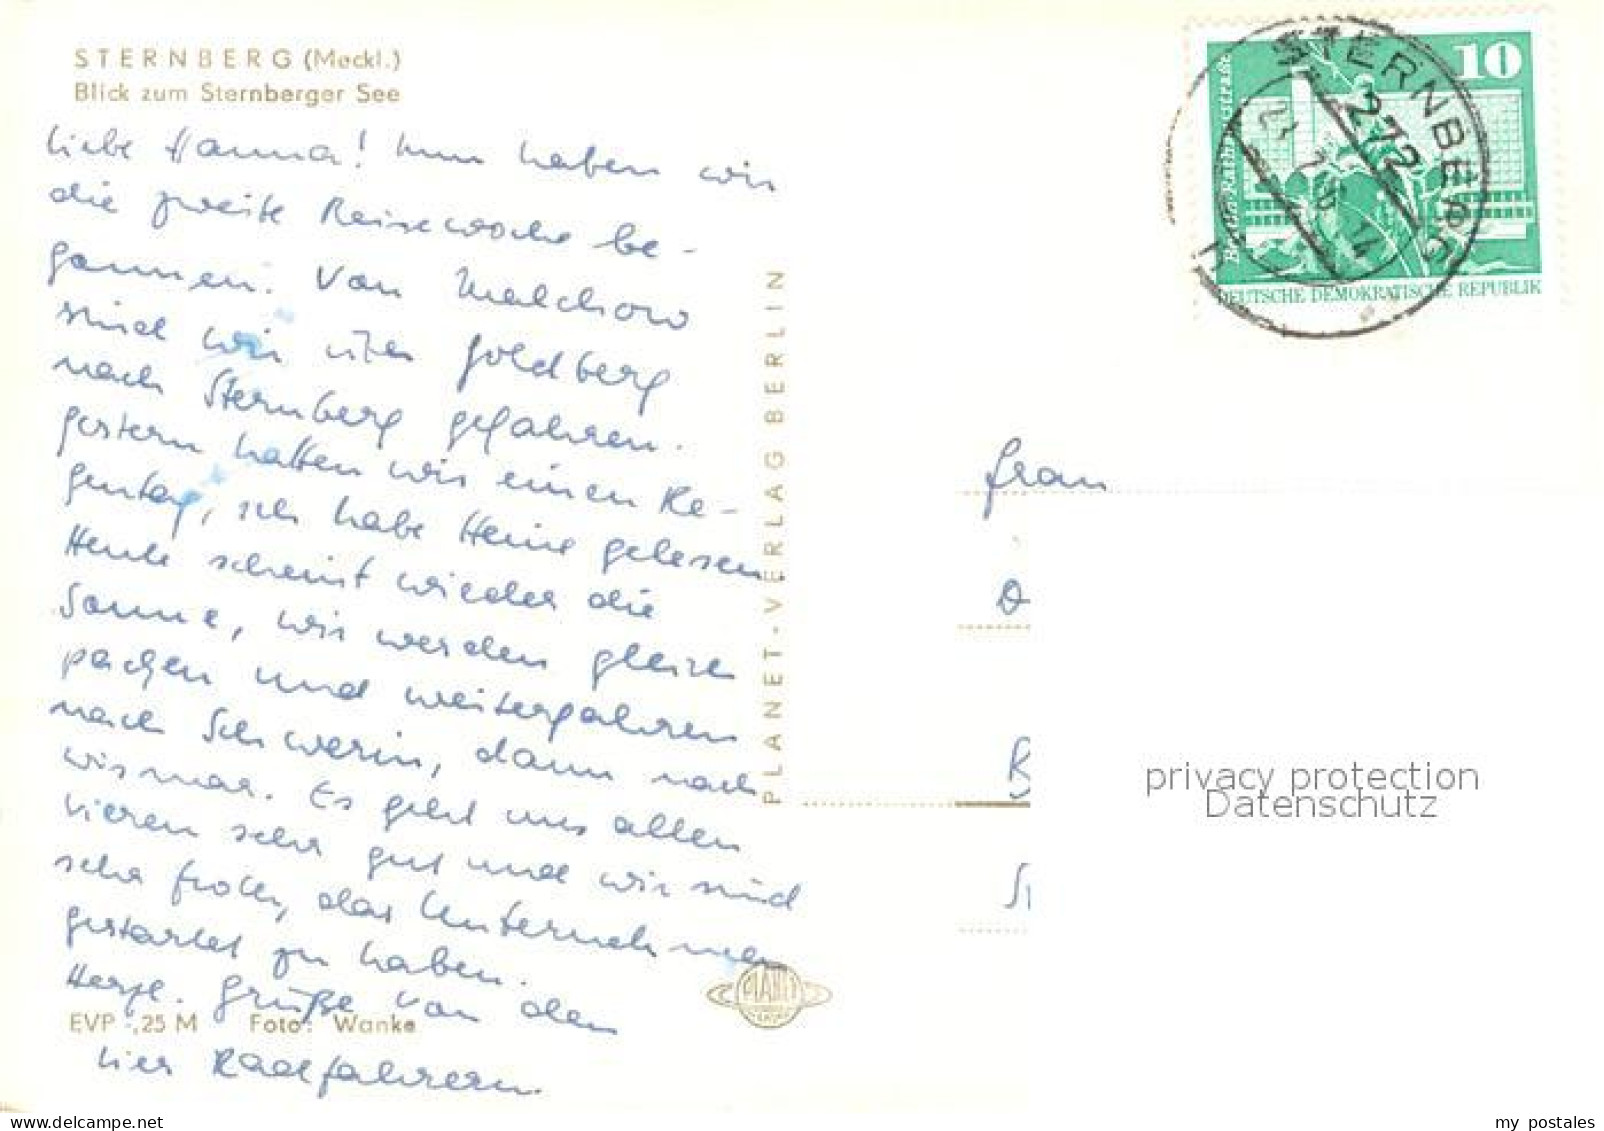 STERNBERG (Meckl.)
Blick zum Sternberger See
Liebe Hanna! Nun haben wir
die zweite Reisewoche be-
gonnen. Von Malchow
sind wir über Goldberg
nach Sternberg gefahren.
Gestern hatten wir einen Re-
gentag, ich habe Heine gelesen
Heute scheint wieder die
Sonne, wir werden gleich
packen und weiterfahren
nach Schwerin, dann nach
Wismar. Es geht uns allen
vieren sehr gut und wir sind
sehr froh, das Unternehmen
gestartet zu haben.
Herzl. Grüße von den
vier Radfahrern.
EVP -,25 M Foto: Wanke
PLANET-VERLAG BERLIN
PLANET
10
DEUTSCHE DEMOKRATISCHE REPUBLIK
STERNBERG
272
Frau
B
privacy protection
Datenschutz
delcampe.net
my_postales